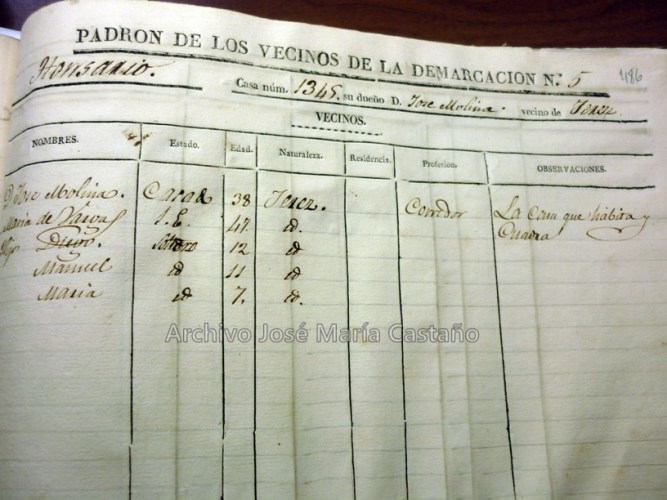 PADRON DE LOS VECINOS DE LA DEMARCACION N.º 5
486
Honsario.
Casa núm. 1345. su dueño D. Jose Molina. vecino de Jerez
VECINOS.
NOMBRES. Estado. Edad. Naturaleza. Residencia. Profesion. OBSERVACIONES.
D. Jose Molina. Casad 38 Jerez. Corredor La Casa que habita y
Maria de 47. id. Cuadra
Soltero 12 id
Manuel id 11 id
Maria id 7. id.
Archivo José María Castaño